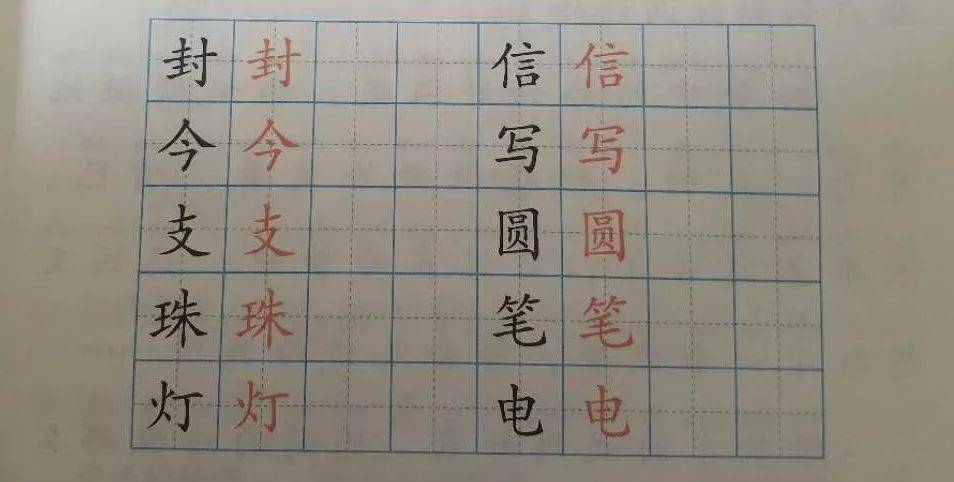 封 封 信 信
今 今 写 写
支 支 圆 圆
珠 珠 笔 笔
灯 灯 电 电